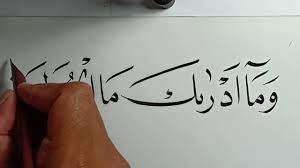 وَمَآ اَدْرٰىكَ مَا